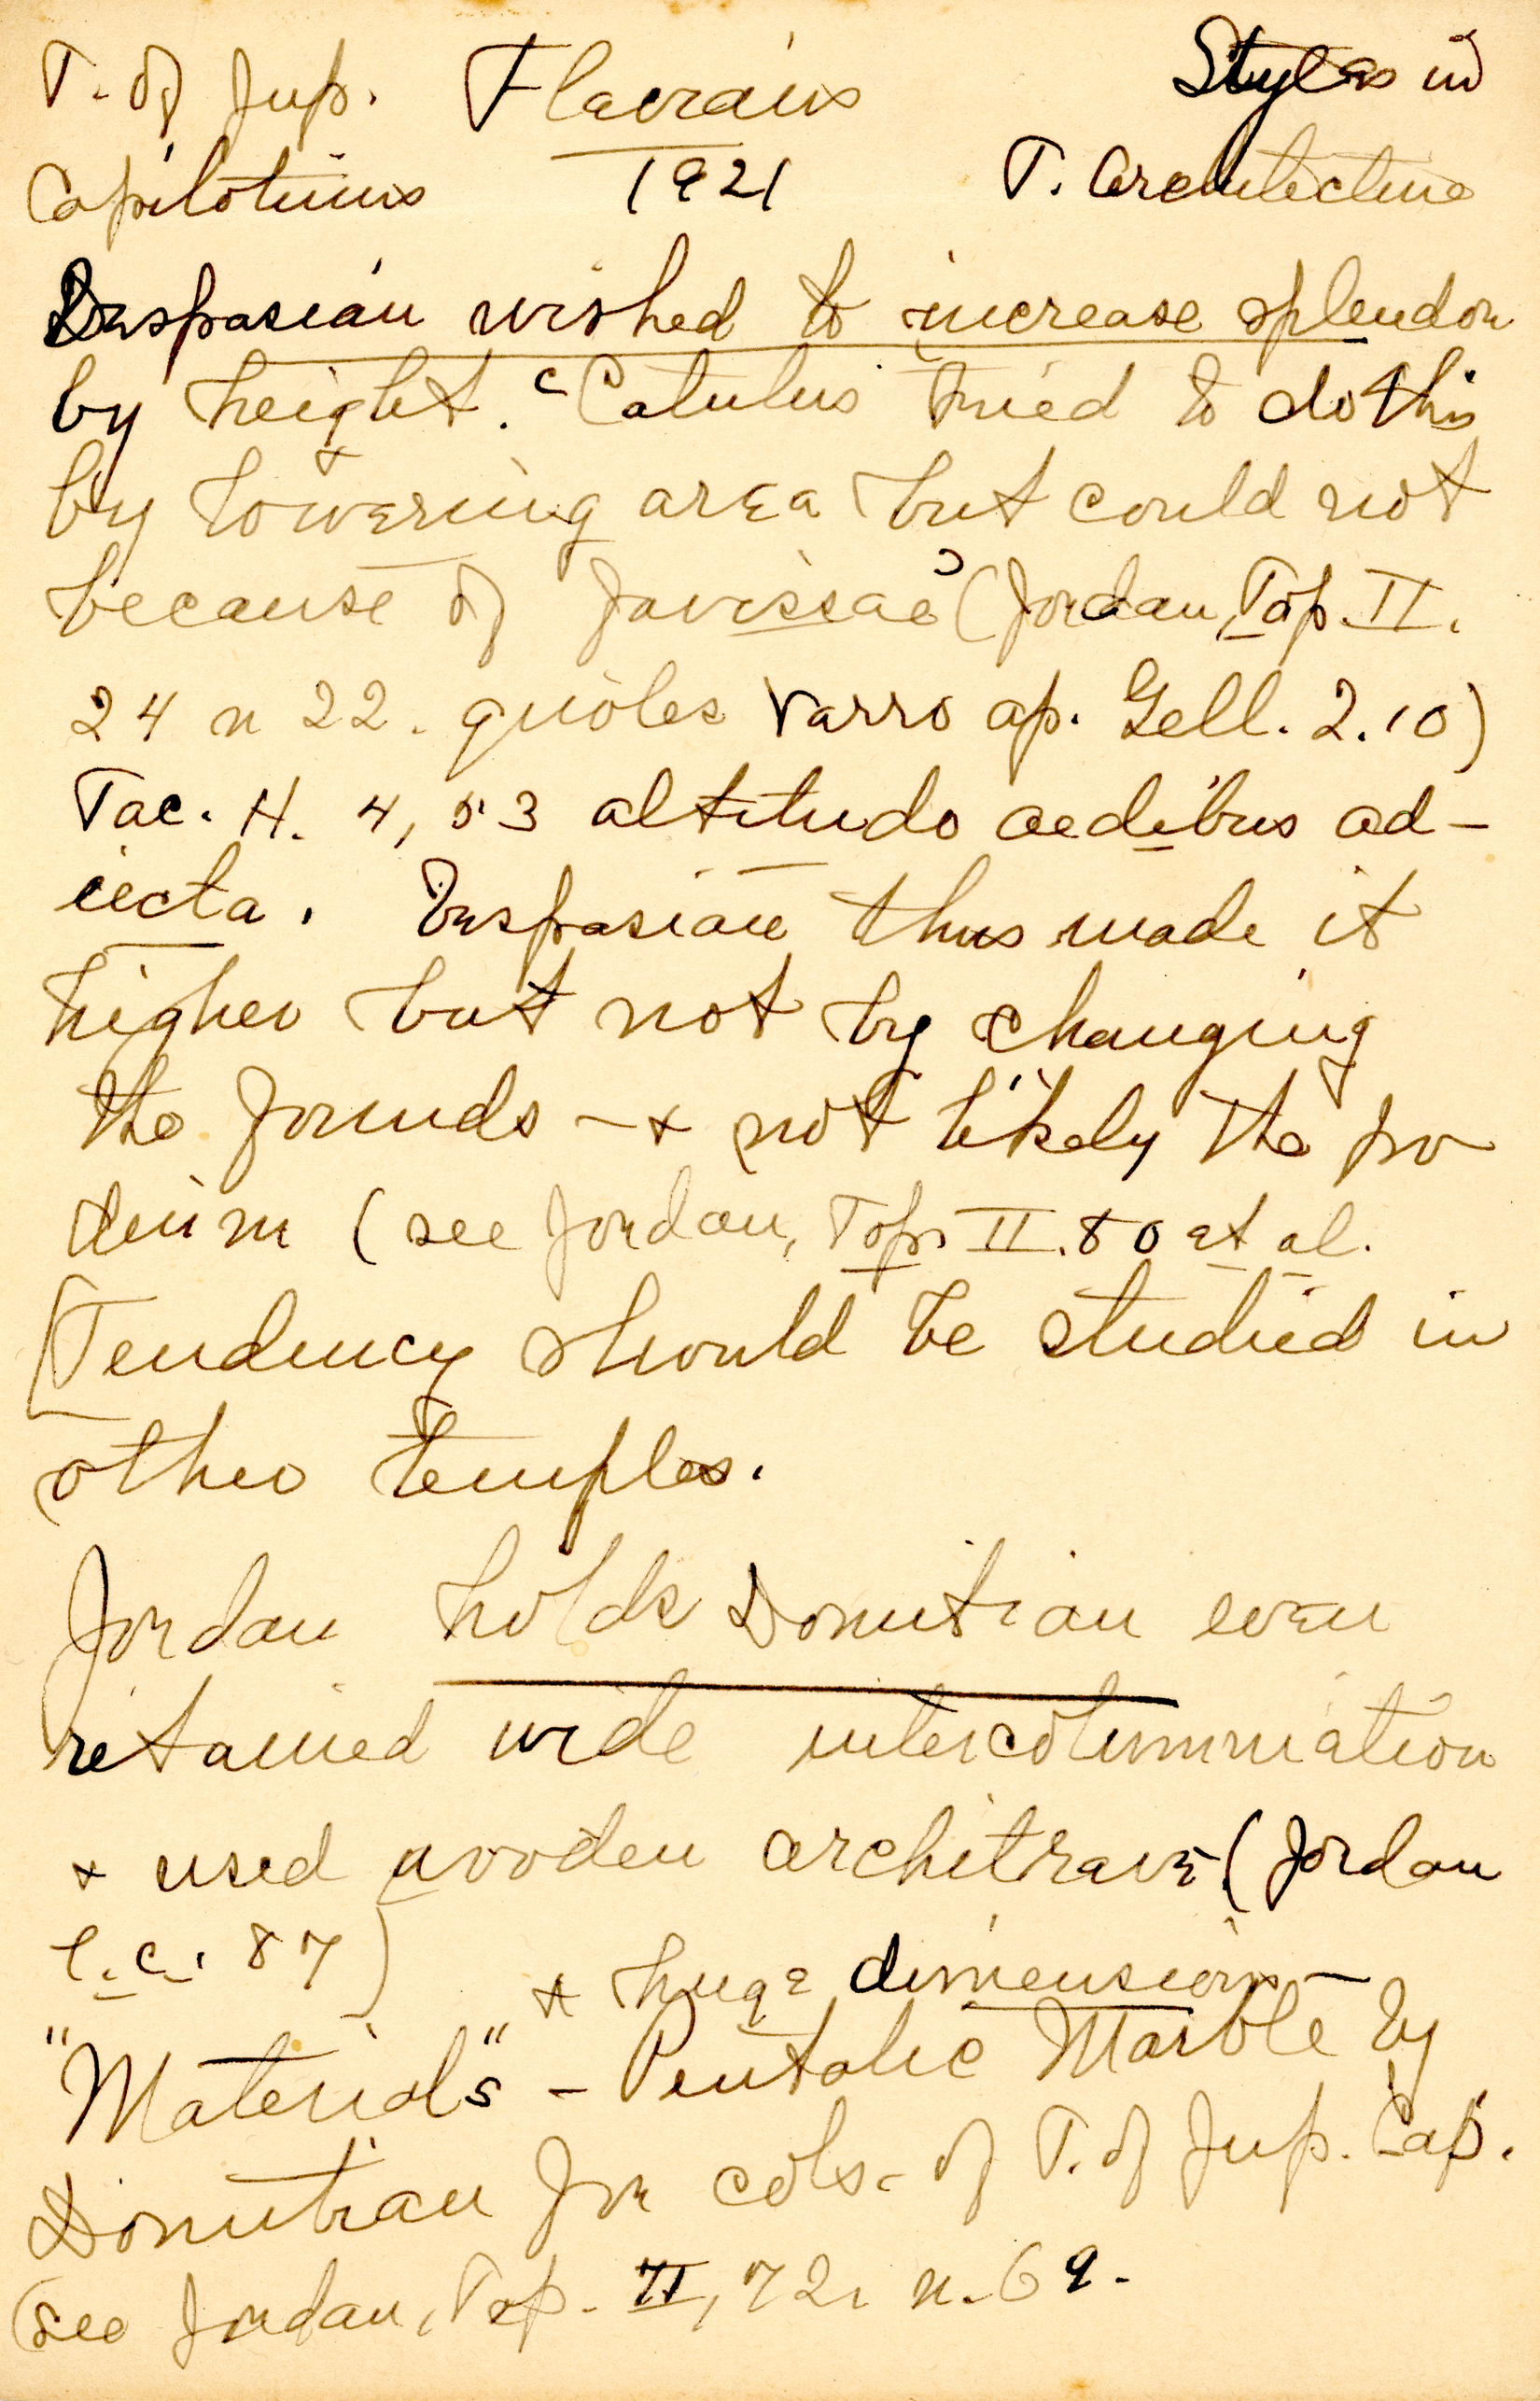 T. of Jup. Flavians Styles in
Capitolinus 1921 T. Architecture
Vespasian wished to increase splendor
by height. (Catulus tried to do this
by lowering area but could not
because of favissae) (Jordan, Top. II.
24 n 22. quotes Varro ap. Gell. 2.10)
Tac. H. 4, 53 altitudo aedibus ad-
iecta. Vespasian thus made it
higher but not by changing
the founds - + not likely the po
dium (see Jordan, Top. II. 80 et al.
[Tendency should be studied in
other temples.
Jordan holds Domitian even
retained wide intercolumniation
+ used wooden architrave (Jordan
l.c. 87) + huge dimensions -
"Materials" - Pentalic Marble by
Domitian for cols. of T. of Jup. Cap.
(see Jordan, Top. II, 72, n. 69.